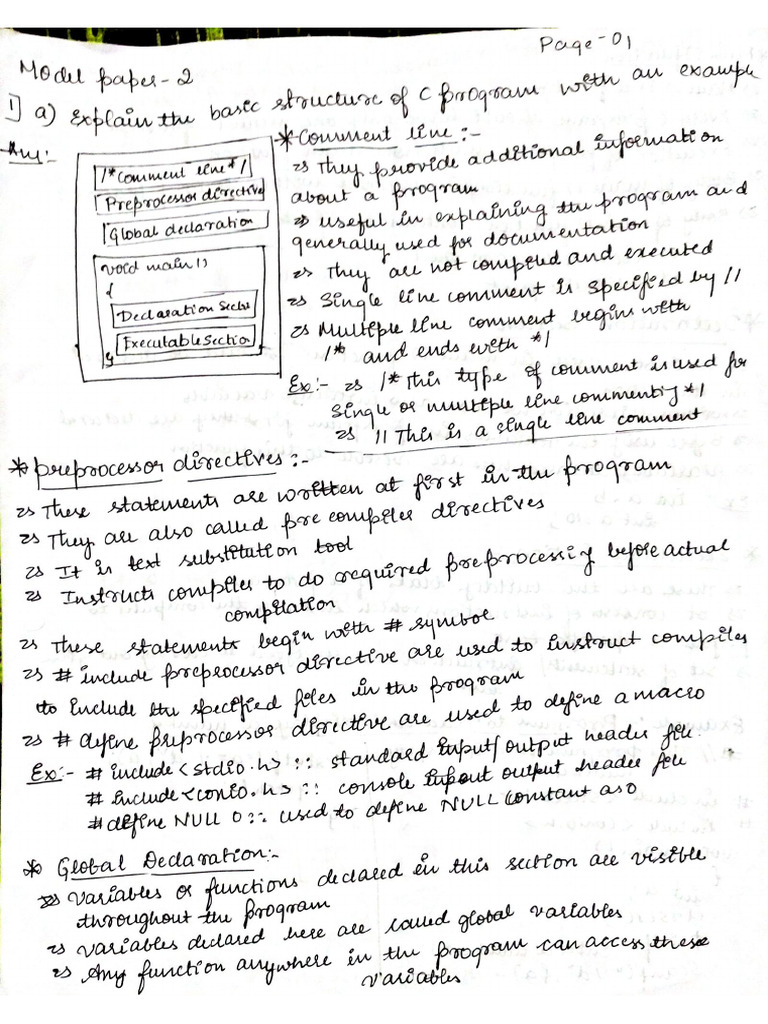 Page-01
Model paper-2
1] a) Explain the basic structure of C program with an example
Ans:-
/*Comment line*/
Preprocessor directive
Global declaration
void main()
{
Declaration Section
Executable Section
}
* Comment line:-
→ They provide additional information
about a program
→ Useful in explaining the program and
generally used for documentation
→ They are not compiled and executed
→ Single line comment is specified by //
→ Multiple line comment begins with
/* and ends with */
Ex:- → /* This type of comment is used for
single or multiple line commenting */
→ // This is a single line comment
* preprocessor directives:-
→ These statements are written at first in the program
→ They are also called pre compiler directives
→ It is text substitution tool
→ Instructs compiler to do required preprocessing before actual
compilation
→ These statements begin with # symbol
→ # include preprocessor directive are used to instruct compiler
to include the specified files in the program
→ # define preprocessor directive are used to define a macro
Ex:- # include<stdio.h> :: standard input/output header file.
# include<conio.h> :: console input output header file
#define NULL 0 :: used to define NULL constant as 0
* Global Declaration:-
→ Variables or functions declared in this section are visible
throughout the program
→ Variables declared here are called global variables
→ Any function anywhere in the program can access these
variables